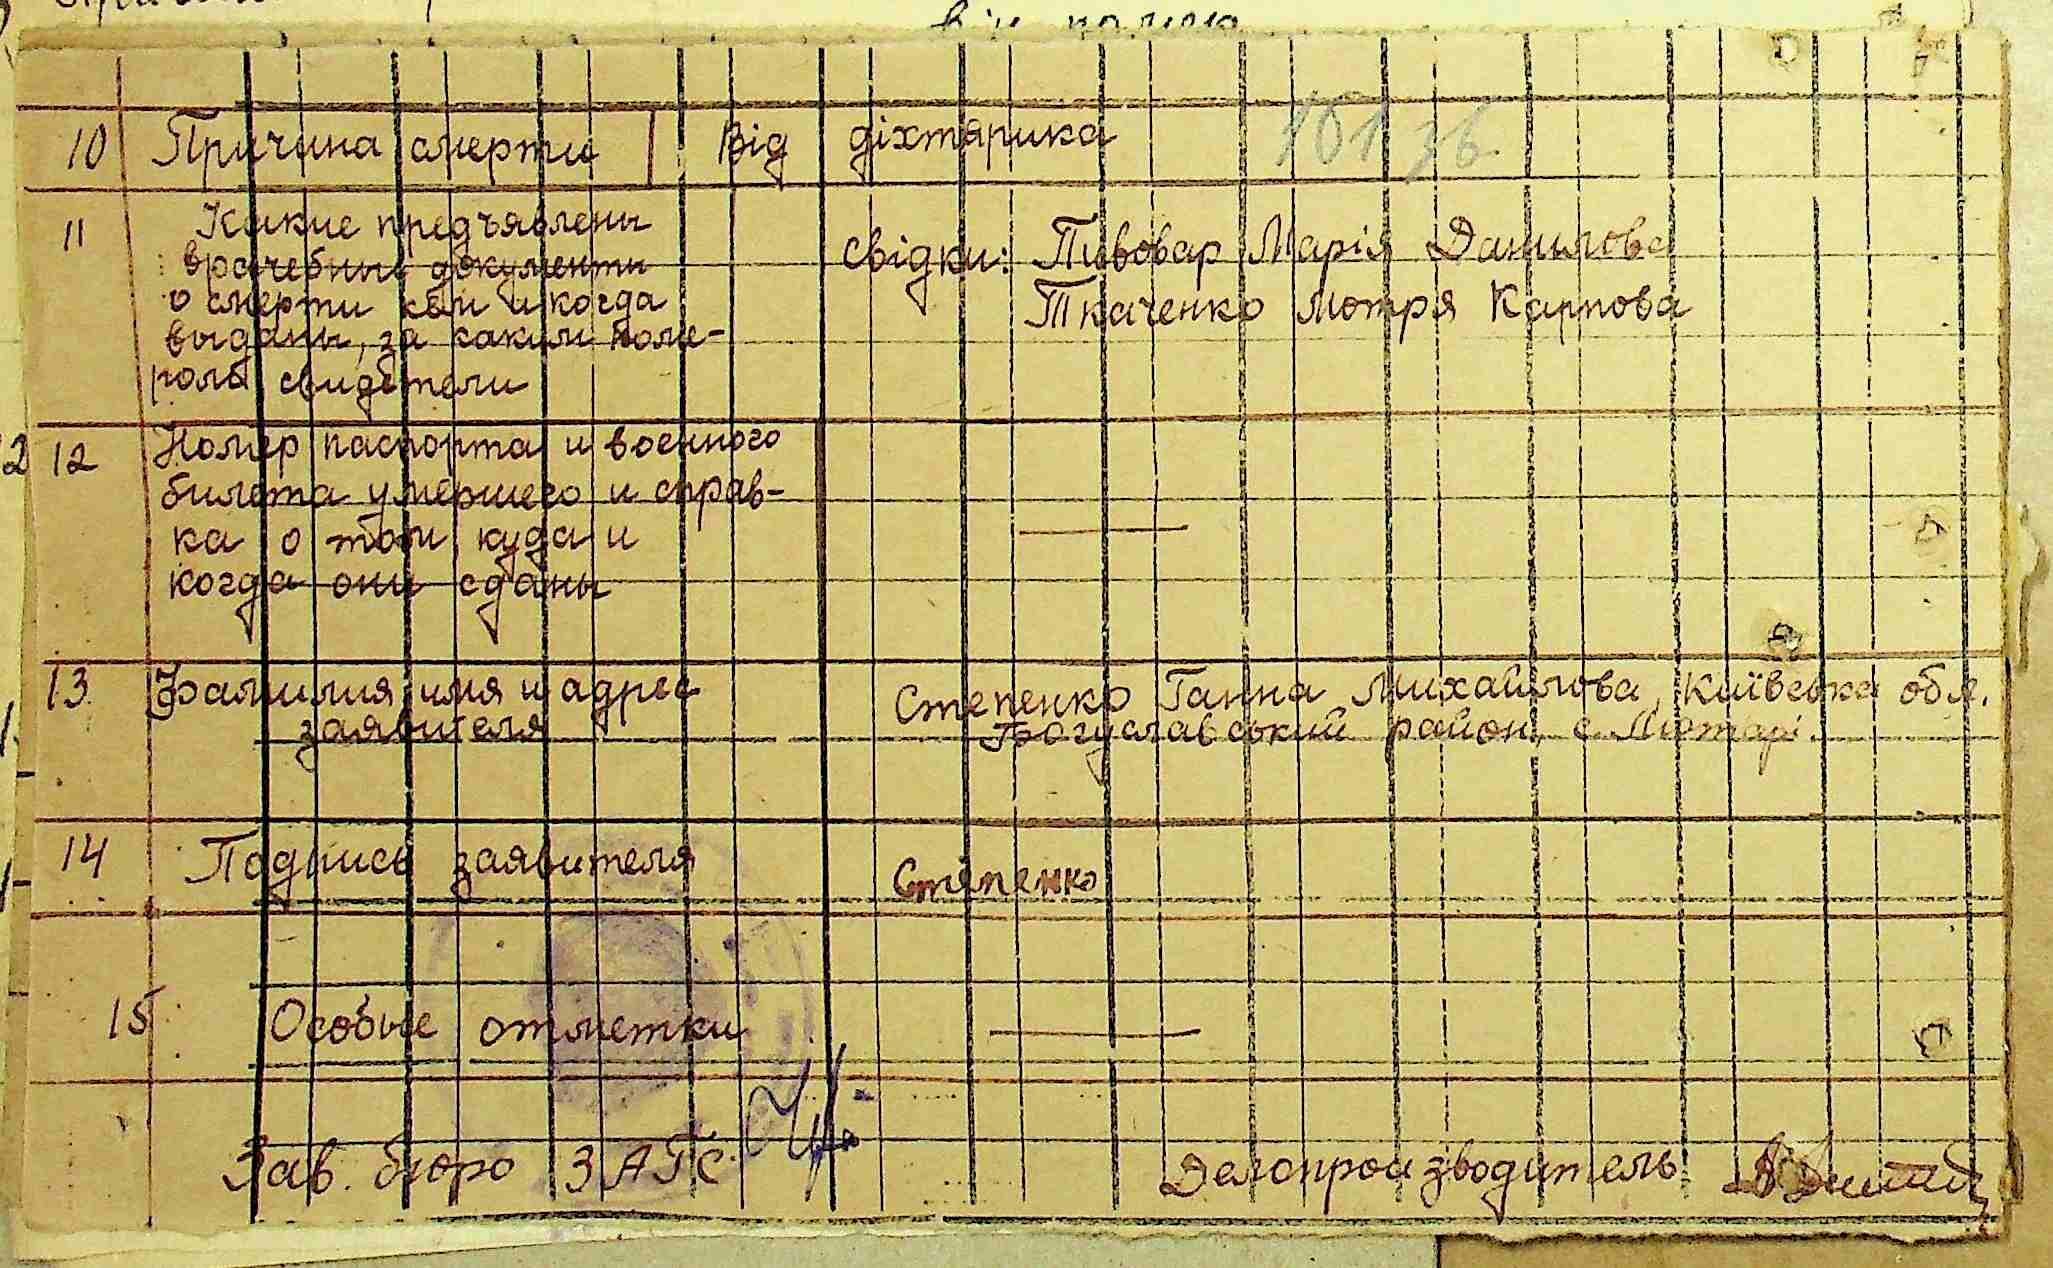 10 Причина смерти Від діхтярика
101 зв.
11 Какие предъявлены
врачебные документы
о смерти кем и когда
выданы, за каким номе-
ром свидетели
свідки: Пивовар Марія Данилова
Ткаченко Мотря Карпова
12 Номер паспорта и военного
билета умершего и справ-
ка о том куда и
когда они сданы
13 Фамилия, имя и адрес
заявителя
Степенко Ганна Михайлова, Київська обл.
Богуславський район, с.
14 Подпись заявителя Степенко
15 Особые отметки
Зав. бюро ЗАГС Делопроизводитель